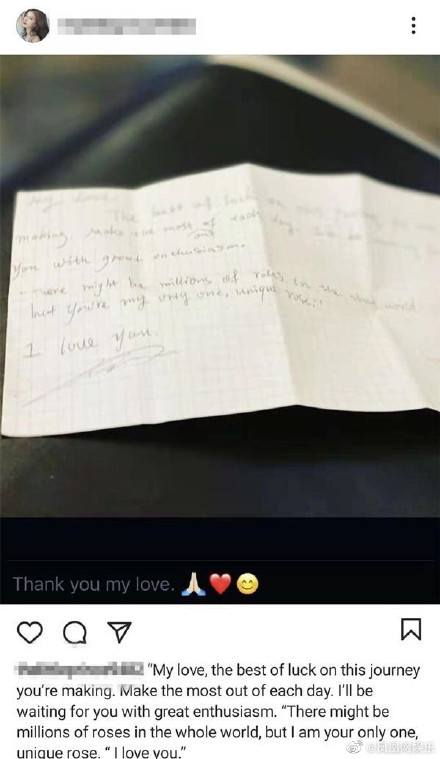 My love
The best of luck on this journey you're
making. Make the most of each day.
out
you with great enthusiasm.
There might be millions of roses in the whole world
but you're my only one, unique rose..
I love you.
Thank you my love. 🙏🏻❤️😊
"My love, the best of luck on this journey
you're making. Make the most out of each day. I'll be
waiting for you with great enthusiasm. "There might be
millions of roses in the whole world, but I am your only one,
unique rose. " I love you."
@凤凰网娱乐